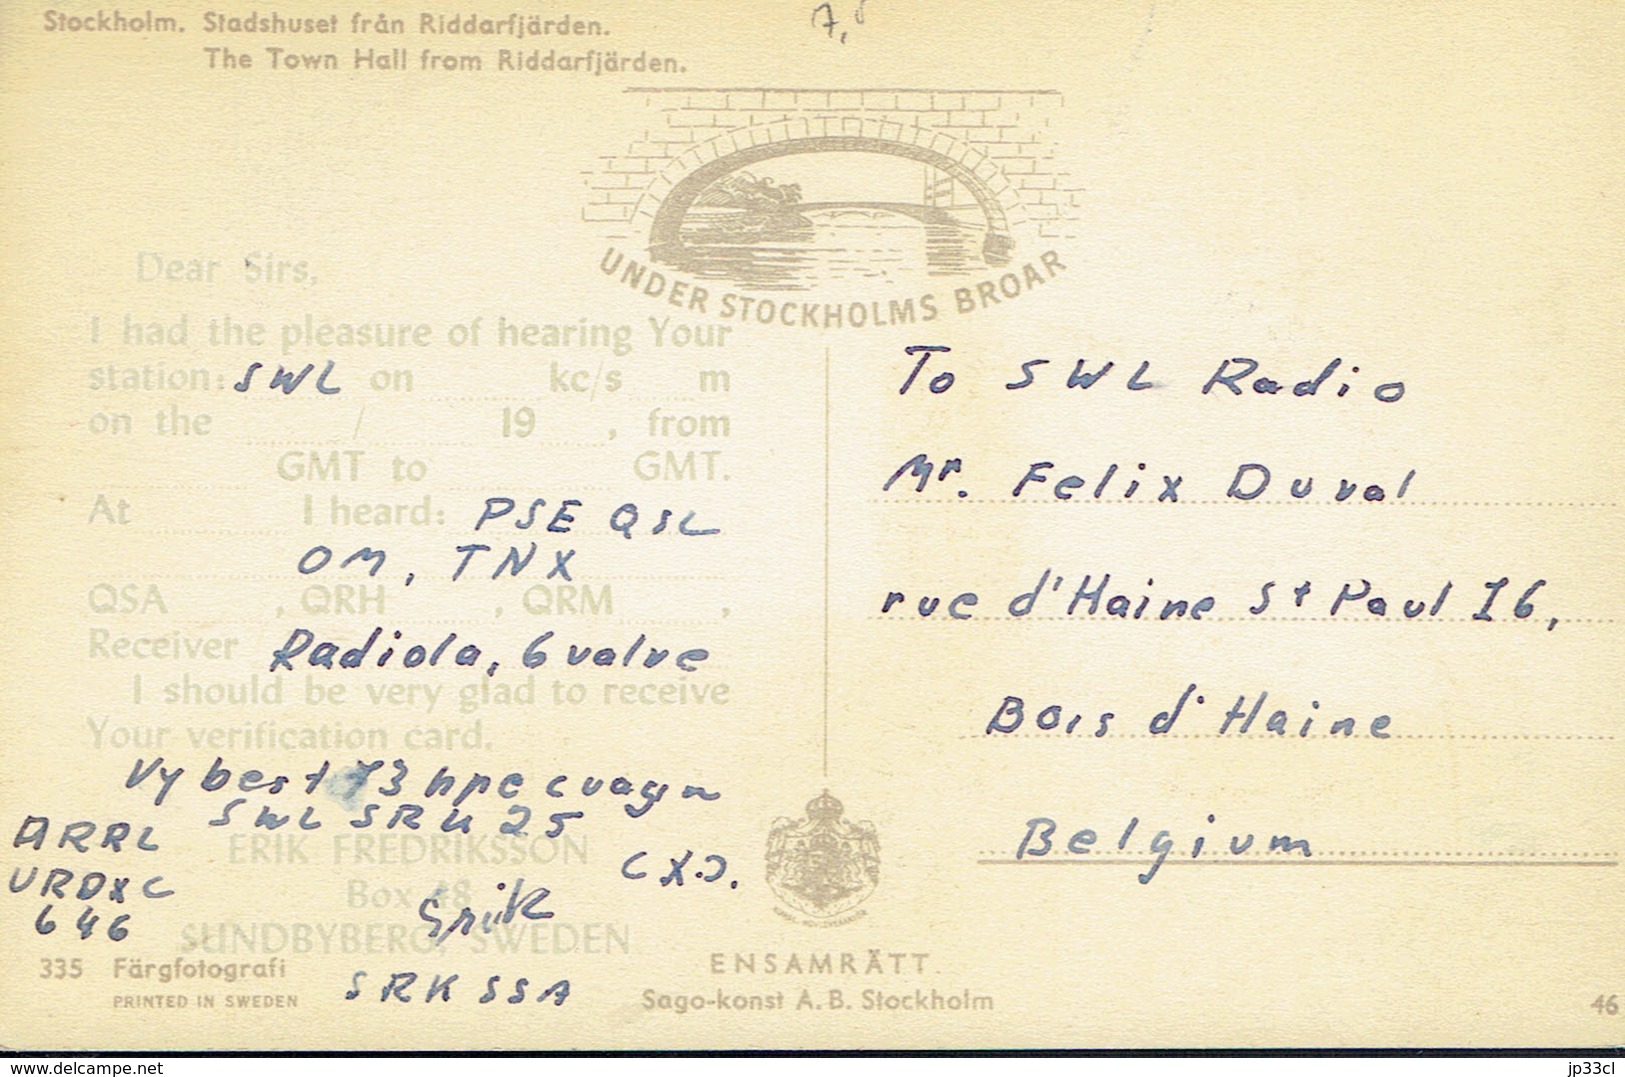 Stockholm. Stadshuset från Riddarfjärden.
The Town Hall from Riddarfjärden.
7,
UNDER STOCKHOLMS BROAR
Dear Sirs,
I had the pleasure of hearing Your
station: SWL on kc/s m
on the / 19 , from
GMT to GMT.
At I heard: PSE QSL
OM, TNX
QSA , QRH , QRM ,
Receiver Radiola, 6 valve
I should be very glad to receive
Your verification card.
Vy best 73 hpe cuagn
SWL SRK 25
ERIK FREDRIKSSON
Box 48
SUNDBYBERG, SWEDEN
Erik
SRK SSA
ARRL
URDXC
646
To SWL Radio
Mr. Felix Duval
rue d'Haine St Paul 16,
Bois d'Haine
Belgium
335 Färgfotografi
PRINTED IN SWEDEN
ENSAMRÄTT.
Sago-konst A.B. Stockholm
46
www.delcampe.net
jp33cl